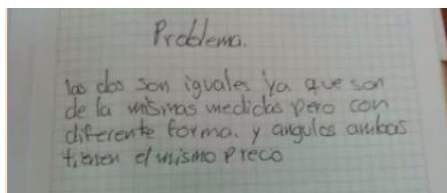 Problema.
las dos son iguales ya que son
de la mismas medidas pero con
diferente forma. y angulos ambos
tienen el mismo precio